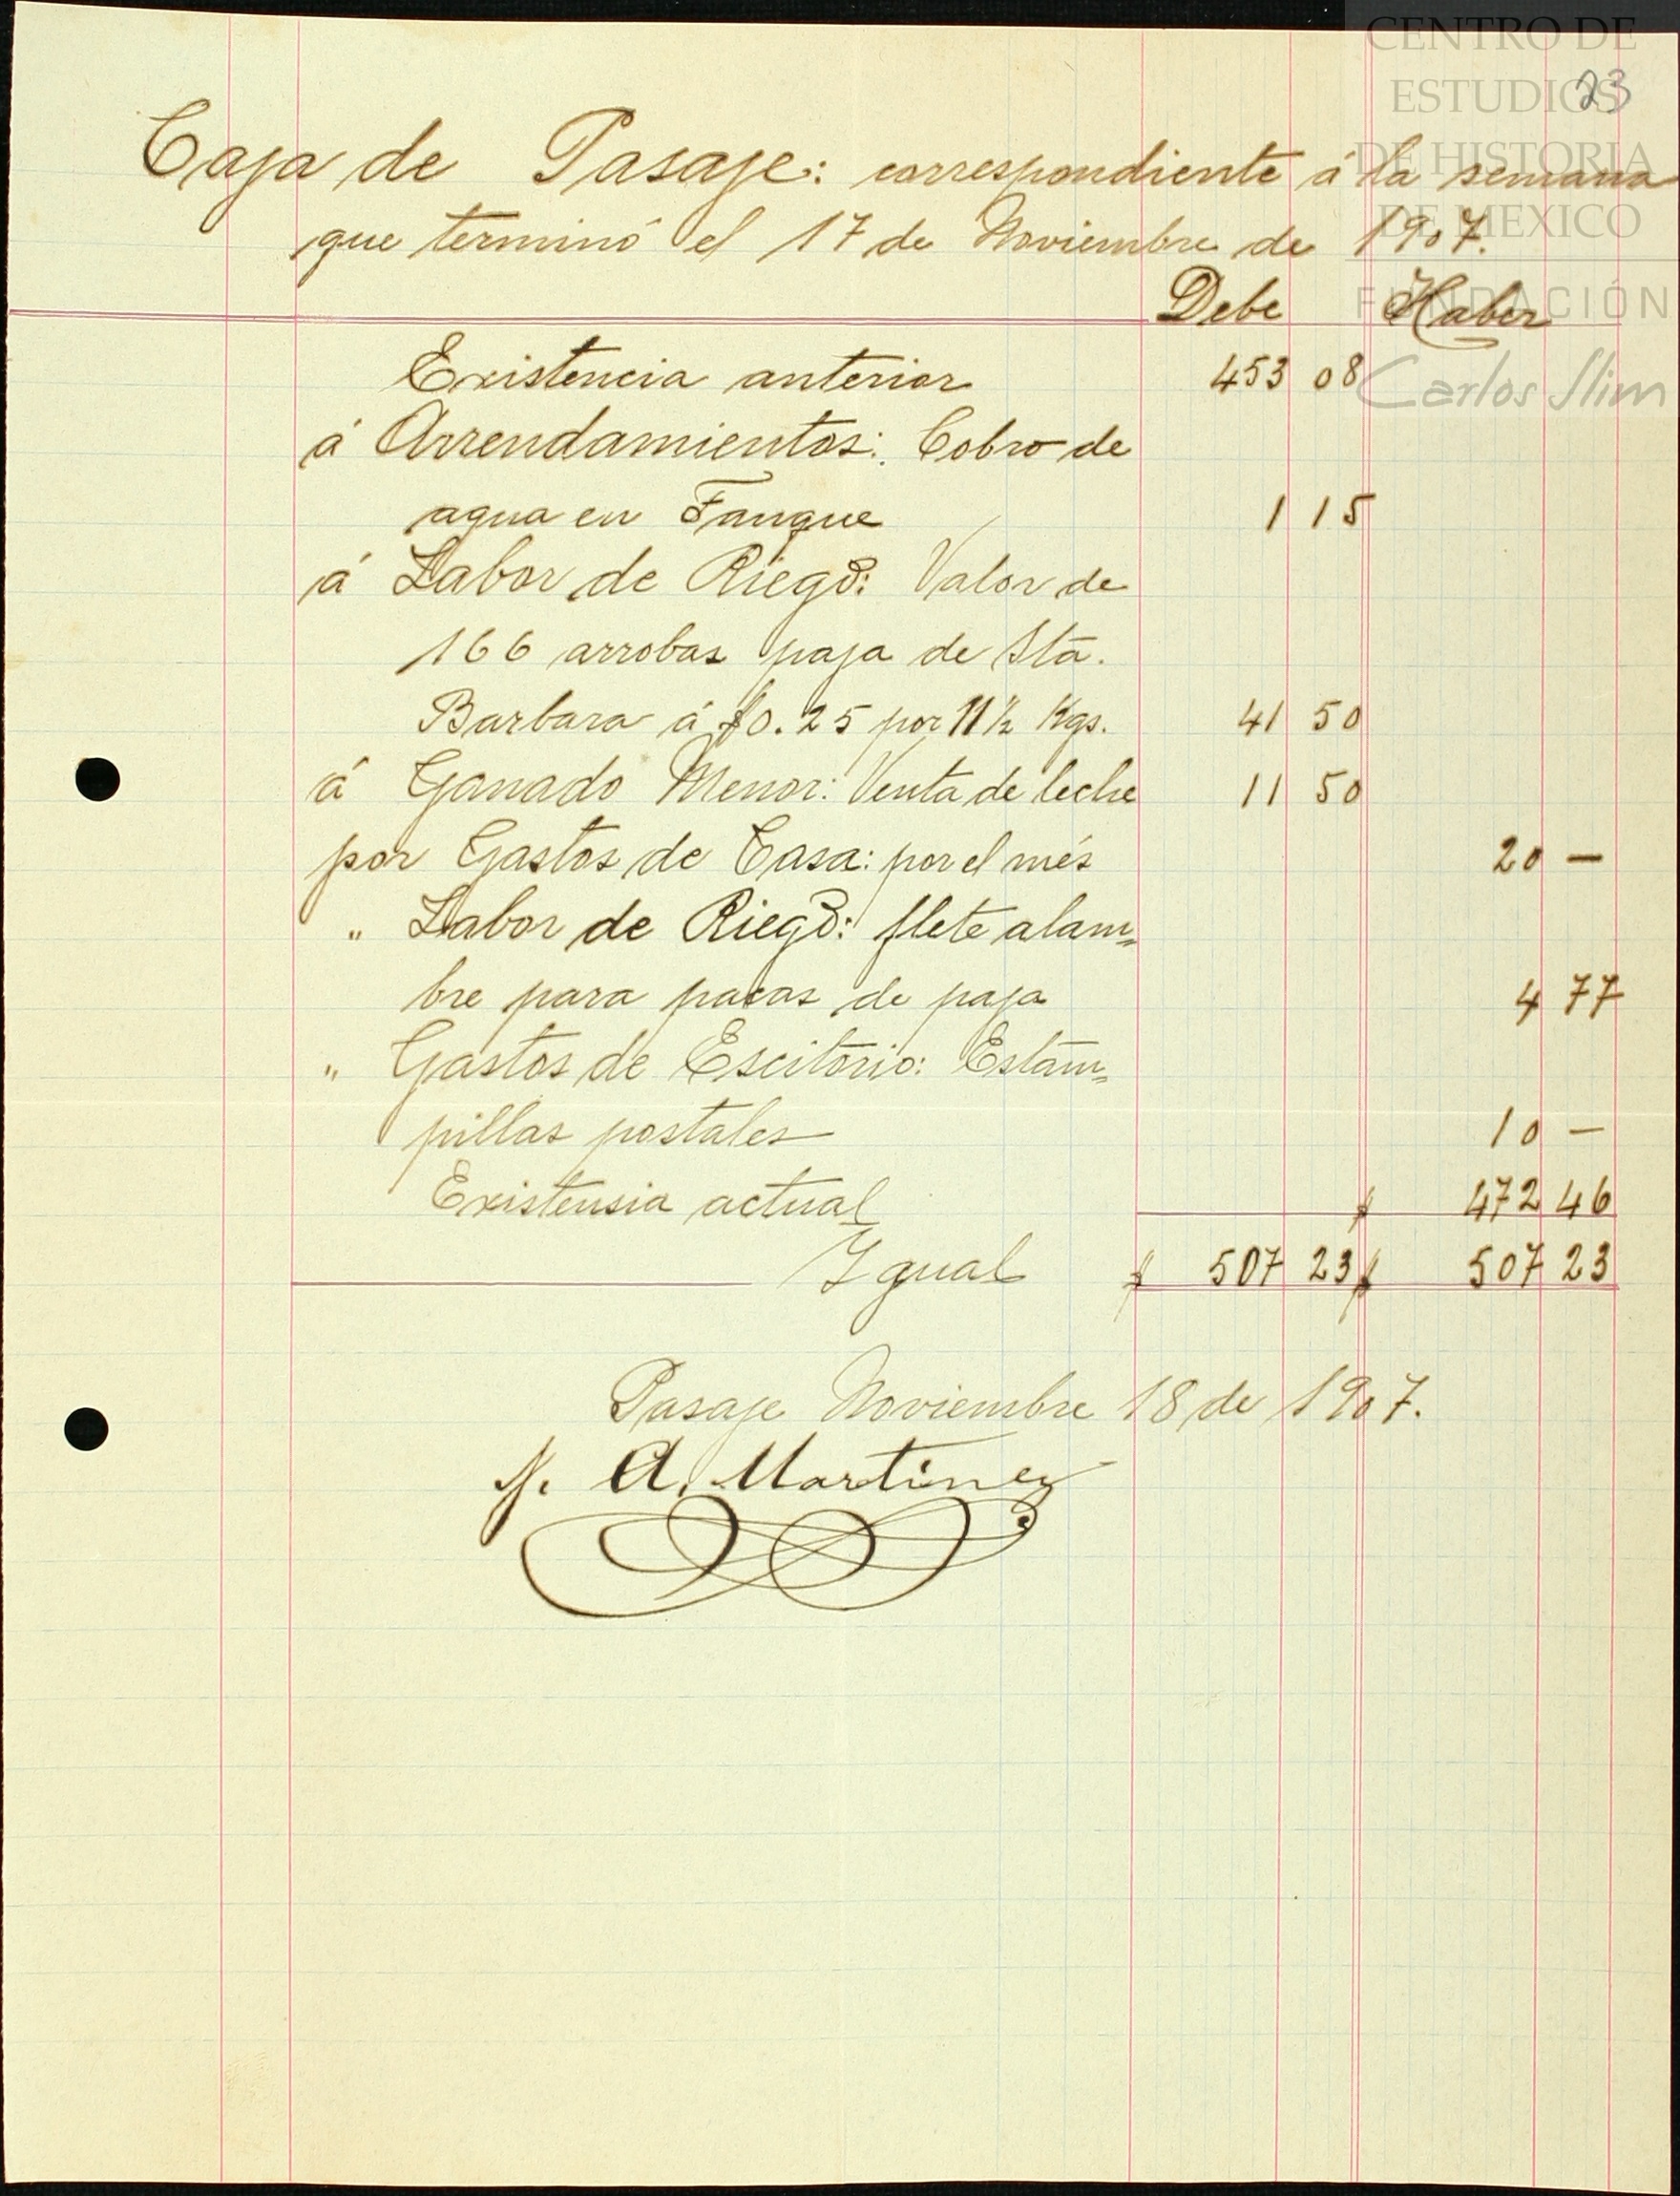 CENTRO DE
ESTUDIOS
DE HISTORIA
DE MEXICO
FUNDACIÓN
Carlos Slim
23
Caja de Pasaje: correspondiente á la semana
que terminó el 17 de Noviembre de 1907.
Debe Haber
Existencia anterior 453 08
á Arrendamientos: Cobro de
agua en Tanque 1 15
á Labor de Riego: Valor de
166 arrobas paja de Sta.
Barbara á $0.25 por 11½ Kgs. 41 50
á Ganado Menor: Venta de leche 11 50
por Gastos de Casa: por el més 20 —
„ Labor de Riego: flete alam=
bre para pacas de paja 4 77
„ Gastos de Escitorio: Estam=
pillas postales 10 —
Existensia actual $ 472 46
Igual $ 507 23 $ 507 23
Pasaje Noviembre 18 de 1907.
N. A. Martinez